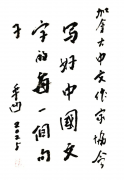 加拿大中文作家協会
写好中國文
字的每一個句
子
2025